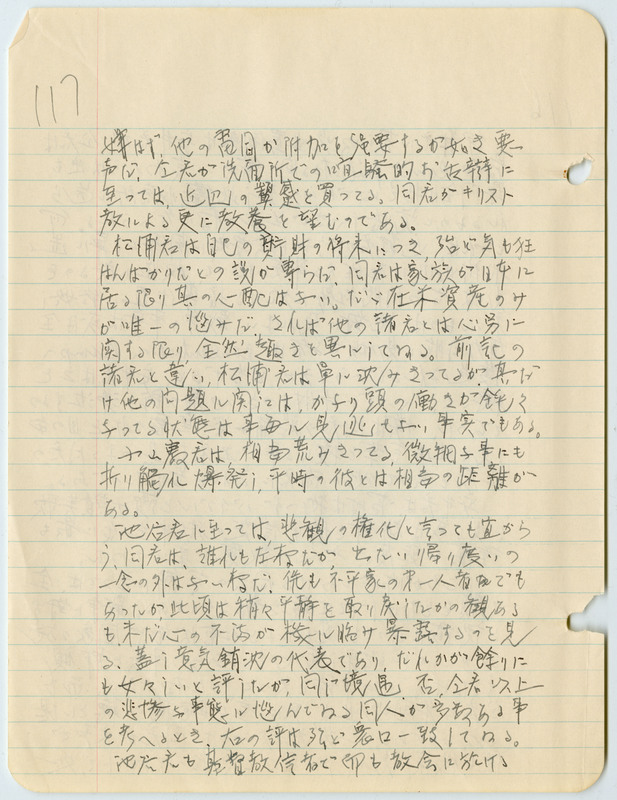 117
嫌はず、他の 面目か附加を強要するが如き 悪
声だ。全君が洗面所での喧騒的お告辞に
至っては、近辺の顰蹙を買ってる。同君がキリスト
教による更に教養を望むのである。
松浦君は自己の貯財の将来につき、殆ど気も狂
はんばかりだとの説が専らだ、同君は家族が日本に
居る限り其の心配はない。たゞ在米資産のみ
が唯一の悩みだ、されば他の諸君とは心労に
関する限り、全然趣きを異にしてゐる。前記の
諸君と違い、松浦君は単に沈みきってるが、其だ
け他の問題に関しては、かなり頭の働きが鈍く
なってる状態は年毎に見逃せない事実でもある。
山慶君は、相当荒みきってる、微細な事にも
折り触れ爆発し、平時の彼とは相当の距離が
ある。
池谷君に至っては、悲観の権化と言っても宜から
う、同君は、誰れも左様だが、出たい帰り度いの
一念の外はない様だ、他も不平家の第一人者でも
あったが此頃は稍々平静を取り戻したかの観ある
も、未だ心の不満が機に臨み暴露するのを見
る、蓋し意気銷沈の代表であり、だれかが余りに
も女々しいと評したが、同じ境遇、否、全君以上
の悲惨な事態に悩んでゐる同人が多数ある事
を考へるとき、右の評は殆ど衆口一致してゐる。
池谷君も基督教信者で 即も教会に於ける